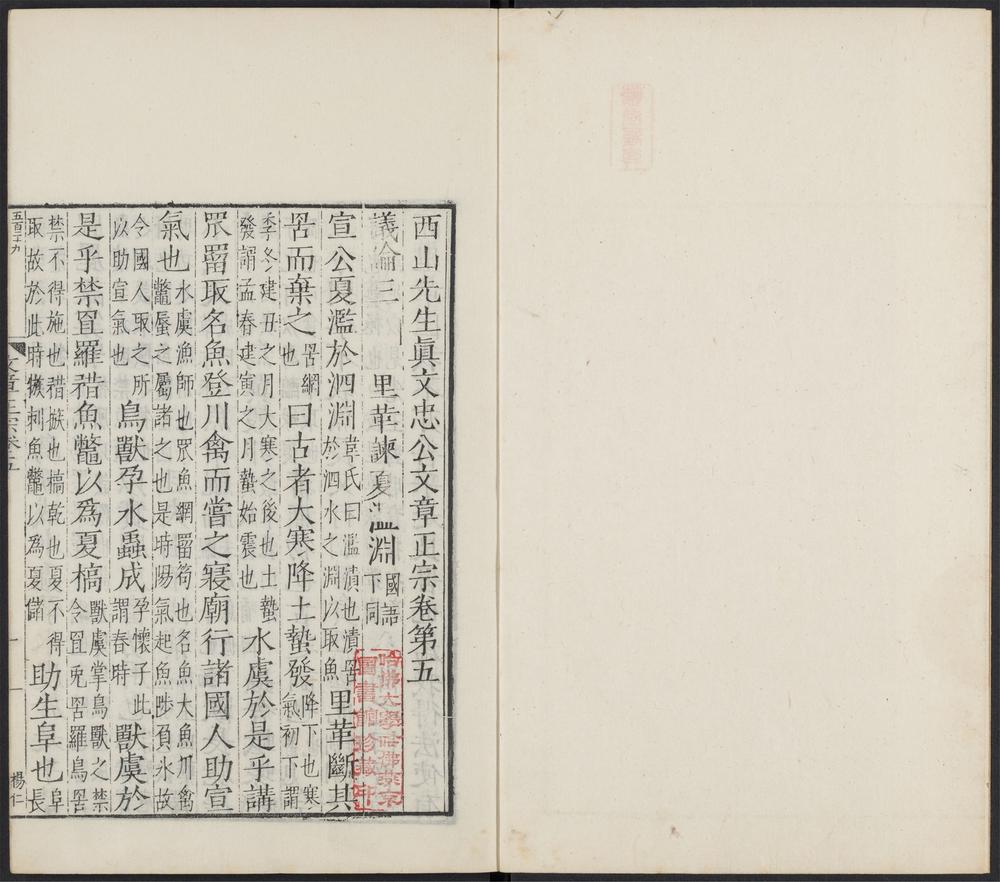 西山先生眞文忠公文章正宗卷第五
議論三
里革諫夏濫淵國語下同
宣公夏濫於泗淵韋氏曰濫漬也漬罟於泗水之淵以取魚里革斷其
罟而棄之罟網也曰古者大寒降土蟄發降下也寒氣初下謂
季冬建丑之月大寒之後也土蟄發謂孟春建寅之月蟄始震也水虞於是乎講
罛罶取名魚登川禽而嘗之寢廟行諸國人助宣
氣也水虞漁師也罛魚網罶笱也名魚大魚川禽鼈蜃之屬諸之也是時陽氣起魚陟負氷故
令國人取之所以助宣氣也鳥獸孕水蟲成孕懷子此謂春時獸虞於
是乎禁罝羅矠魚鼈以爲夏槁獸虞掌鳥獸之禁令罝兎罟羅鳥罟
禁不得施也矠㧖也槁乾也夏不得取故於此時㩧刺魚鼈以爲夏儲助生阜也阜長
五百二十九
文章正宗卷五
一
楊仁
哈佛大學哈佛燕京
圖書館珍藏印